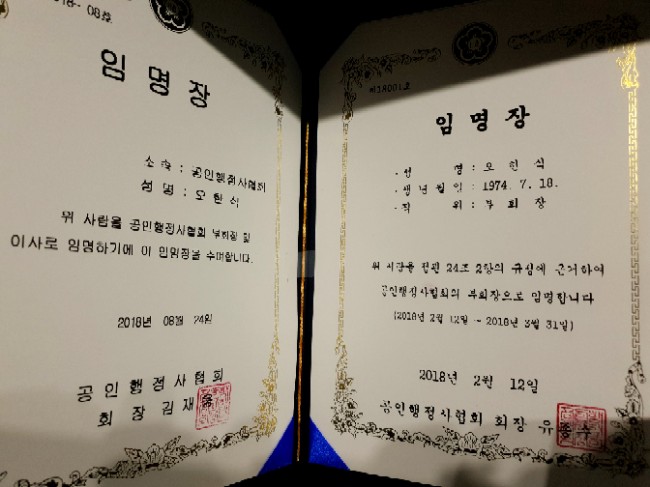 2018-08호
임명장
소속 : 공인행정사협회
성명 : 오현식
위 사람을 공인행정사협회 부회장 및
이사로 임명하기에 이 임명장을 수여합니다.
2018년 08월 24일
공인행정사협회
회장 김재
제18001호
임명장
· 성 명 : 오현식
· 생년월일 : 1974. 7. 18.
· 직 위 : 부회장
위 사람을 정관 24조 2항의 규정에 근거하여
공인행정사협회의 부회장으로 임명합니다
(2018년 2월 12일 ~ 2018년 3월 31일)
2018년 2월 12일
공인행정사협회 회장 유종수